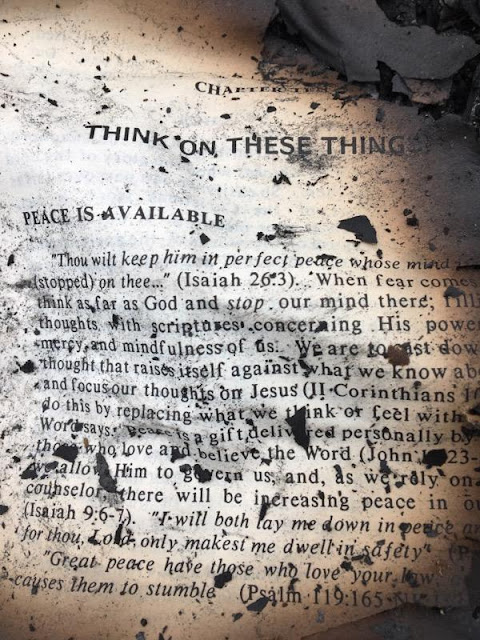 CHAPTER
THINK ON THESE THING
PEACE IS AVAILABLE
"Thou wilt keep him in perfect peace whose mind
(stopped) on thee..." (Isaiah 26:3). When fear comes
think as far as God and stop our mind there; fill
thoughts with scriptures concerning His powe
mercy, and mindfulness of us. We are to cast dow
thought that raises itself against what we know ab
and focus our thoughts on Jesus (II Corinthians 1
do this by replacing what we think or feel with
Word says. Peace is a gift delivered personally by
those who love and believe the Word (John 23-
we allow Him to govern us, and, as we rely on
counselor, there will be increasing peace in ou
(Isaiah 9:6-7). "I will both lay me down in peace an
for thou, Lord, only makest me dwell in safety" (P
"Great peace have those who love your law,
causes them to stumble (Psalm 119:165